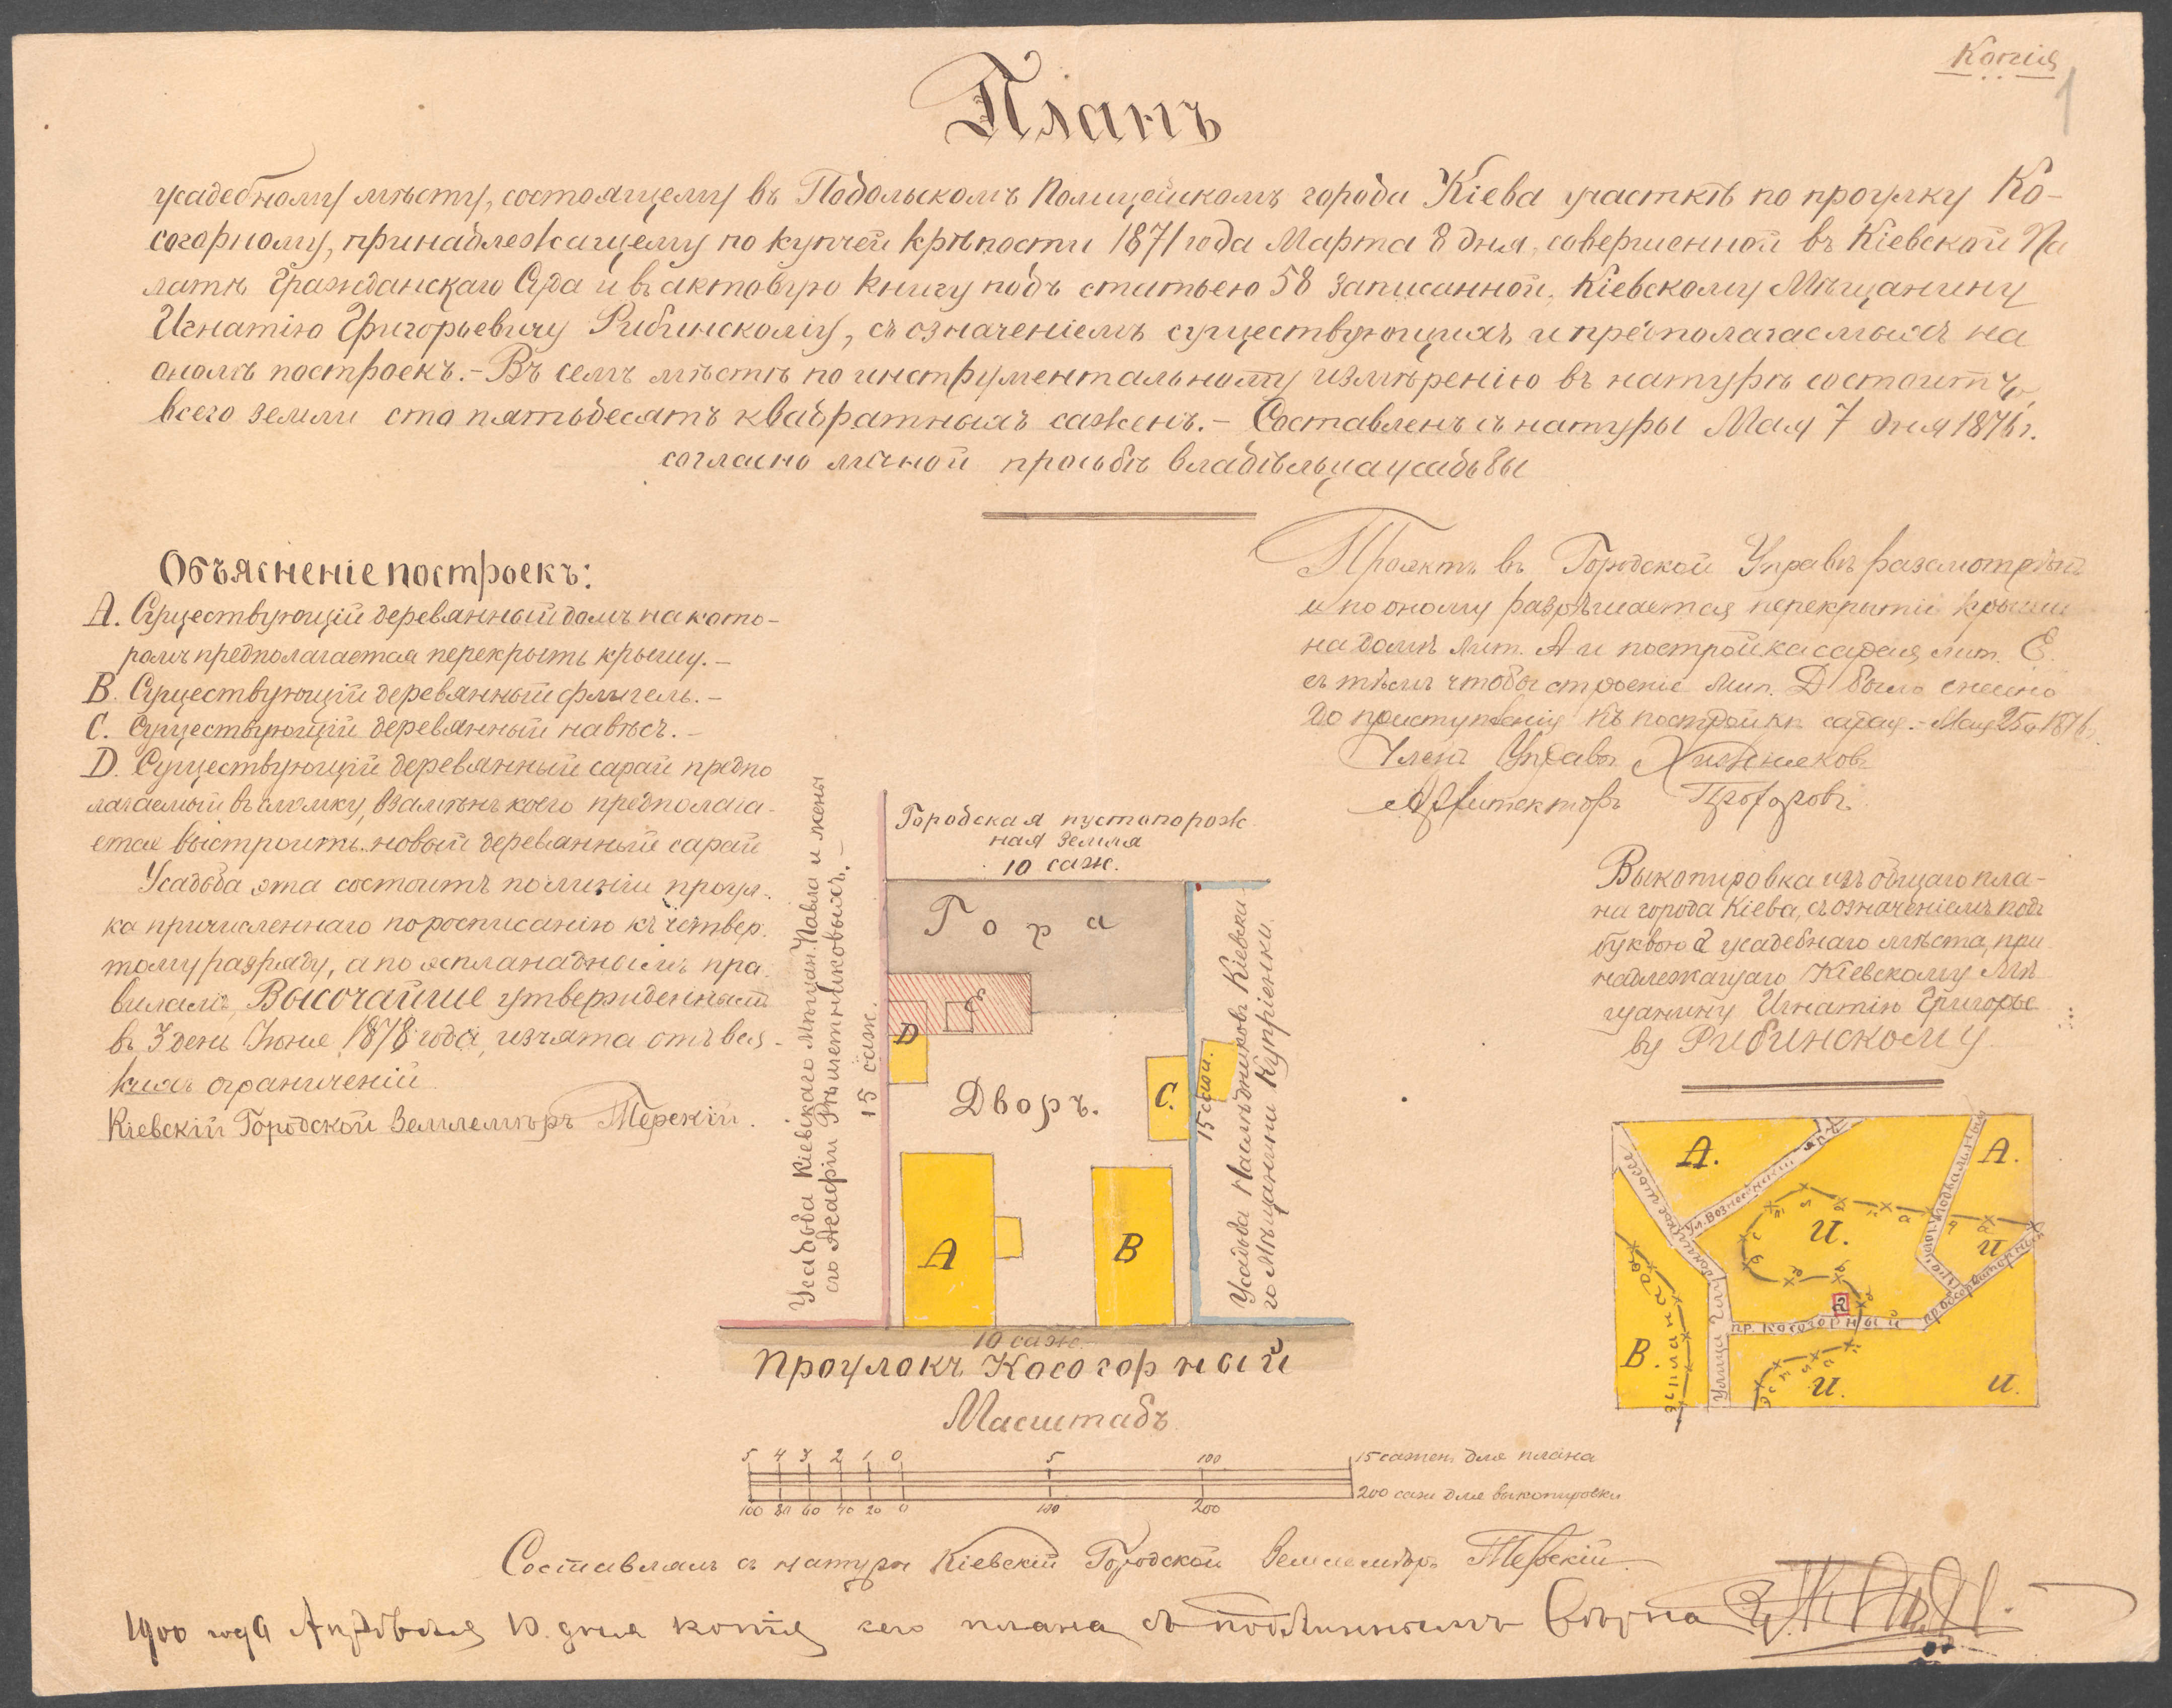 Копія
1
Планъ
усадебному мѣсту, состоящему въ Подольскомъ Полицейскомъ города Кіева участкѣ по проулку Ко-
согорному, принадлежащему по купчей крѣпости 1871 года Марта 8 дня, совершенной въ Кіевской Па
латѣ Гражданскаго Суда и въ актовую книгу подъ статьею 58 записанной, Кіевскому Мѣщанину
Игнатію Григорьевичу Рибинскому, съ означеніемъ существующихъ и предполагаемыхъ на
ономъ построекъ.- Въ семъ мѣстѣ по инструментальному измѣренію въ натурѣ состоитъ
всего земли сто пятьдесятъ квадратныхъ саженъ.- Составленъ съ натуры Мая 7 дня 1876 г.
согласно личной просьбѣ владѣльца усадьбы
Объясненіе построекъ:
А. Существующій деревянный домъ на кото-
ромъ предполагается перекрыть крышу.-
В. Существующій деревянный флигель.-
С. Существующій деревянный навѣсъ.-
D. Существующій деревянный сарай предпо
лагаемый въ сломку, взамѣнъ коего предполага-
ется выстроить новый деревянный сарай
Усадьба эта состоитъ по линіи проул-
ка причисленнаго по росписанію къ четвер-
тому разряду, а по эспланаднымъ пра-
виламъ, Высочайше утвержденнымъ
въ 3 день Іюня 1878 года, изъята отъ вся-
кихъ ограниченій
Кіевскій Городской Землемѣръ Терскій.
Проэктъ въ Городской Управѣ разсмотрѣнъ
и по оному разрѣшается перекрытіе крыши
на домѣ лит. А и постройка сарая лит. Е.
съ тѣмъ чтобы строеніе лит. D было снесено
до приступленія къ постройкѣ сарая.- Мая 25 д. 1876 г.
Членъ Управы Хижняковъ
Архитекторъ
Выкопировка изъ общаго пла-
на города Кіева, съ означеніемъ подъ
буквою а усадебнаго мѣста, при
надлежащаго Кіевскому Мѣ
щанину Игнатію Григорье
ву Рибинскому
Городская пустопорож
ная земля
10 саж.
Гора
Е
D
Дворъ.
С.
А
В
15 саж.
15 саж.
Усадьба Кіевскаго Мѣщан. Павла и жены
его Агафіи Рѣшетниковыхъ.-
Усадьба Наслѣдниковъ Кіевска
го Мѣщанина Купріенки.
10 саж.
Проулокъ Косогорный
А.
А.
И.
И
В.
И.
И.
а
ул. Вознесенскій яръ
пр. Косогорный
пр. Обсерваторный
эспланада
Масштабъ
5 4 3 2 1 0 5 100 15 сажен для плана
100 80 60 40 20 0 100 200 200 саж для выкопировки
Составлялъ съ натуры Кіевскій Городской Землемѣръ Терскій
1900 года Апрѣля 10 дня копія сего плана съ подлиннымъ вѣрна